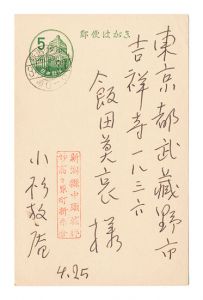 郵便はがき
5
東京都武蔵野市
吉祥寺一八三六
飯田莫哀様
新潟縣中頸城郡
妙高々原町新赤倉
小杉放庵
4.25